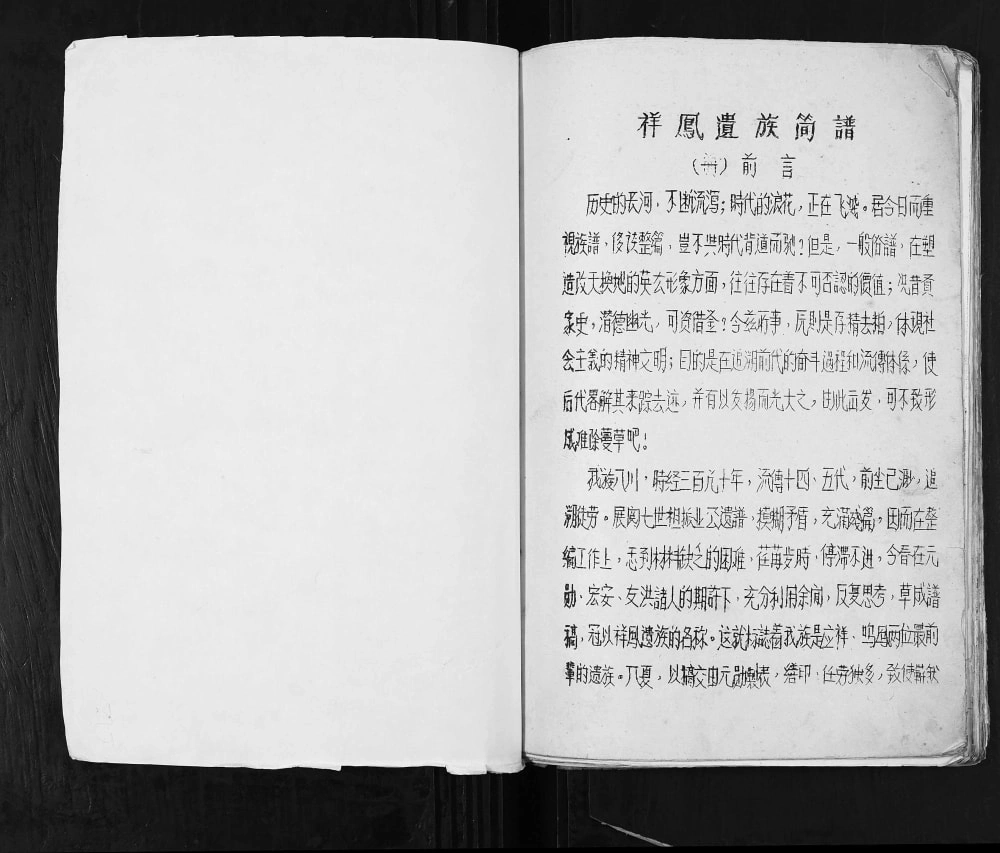 祥鳳遺族简譜
前言
历史的长河，不断流泻；時代的浪花，正在飞溅。居今日而重
視族譜，修该整篇，豈不與時代背道而驰？但是，一般俗譜，在塑
造改天换地的英玄形象方面，往往存在着不可否認的價值；况昔賢
家史，潜德幽光，可资借鉴？今兹所事，原則是存精去粕，体現社
会主義的精神文明；目的是在追溯前代的奋斗過程和流傳体係，使
后代畧解其来踪去迹，并有以发揚而光大之，由此而发，可不致形
成难除蔓草吧！
我族八川，時经三百九十年，流傳十四、五代，前尘已渺，追
溯徒劳。展阅七世祖振业公遺譜，模糊矛盾，充满残篇，因而在整
編工作上，材料缺乏的困难，在每步時，停滞不进，今春在元
勋、宏安、友洪諸人的期許下，充分利用余閒，反复思考，草成譜
稿，冠以祥鳳遺族的名称。这就标誌着我族是立祥、鸣鳳两位最前
輩的遺族。夏，以稿交由元勋製表，繕印，任劳独多，致使解我